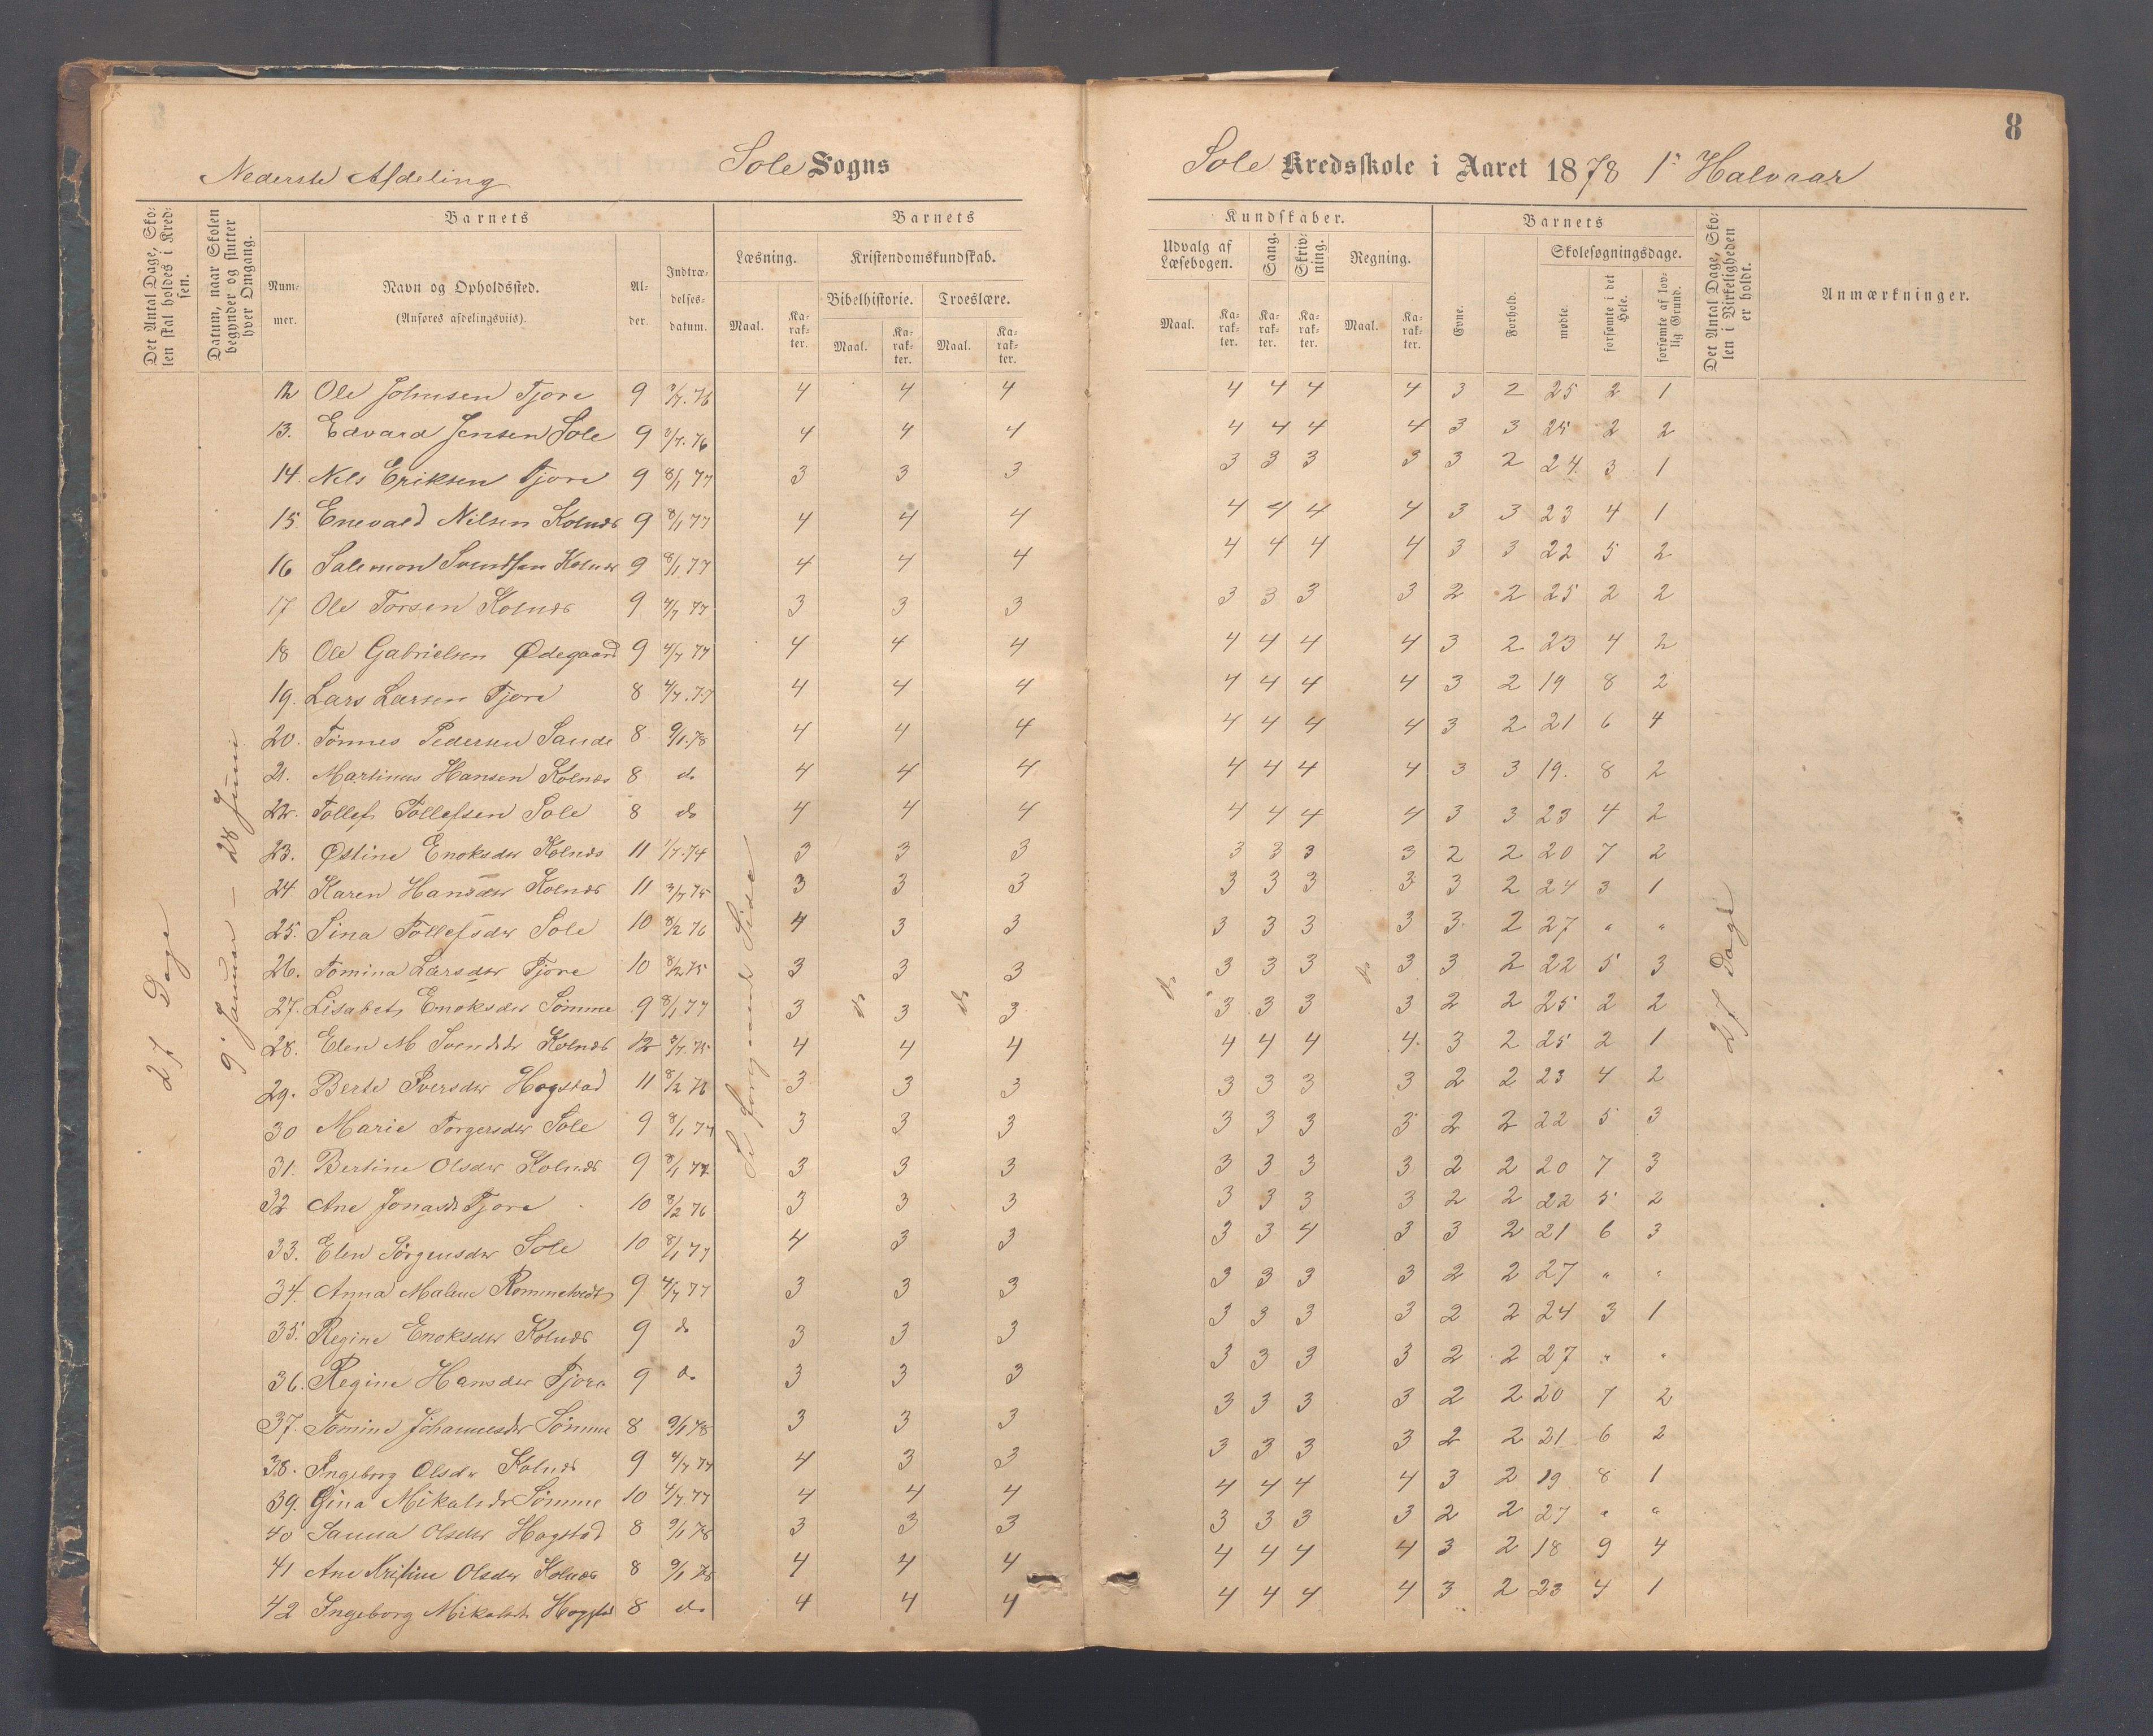 8
Nederste Afdeling Sole Sogns Sole Kredsskole i Aaret 1878 1ste Halvaar
Det Antal Dage, Skolen skal holdes i Kredsen.
Datum, naar Skolen begynder og slutter hver Omgang.
Barnets
Nummer.
Navn og Opholdssted.
(Anføres afdelingsviis).
Alder.
Indtrædelsesdatum.
Barnets Kundskaber.
Læsning.
Kristendomskundskab.
Bibelhistorie. Troeslære.
Maal. Karakter. Maal. Karakter. Maal. Karakter.
Udvalg af Læsebogen. Sang. Skrivning. Regning.
Maal. Karakter. Karakter. Karakter. Maal. Karakter.
Barnets
Evne. Forhold.
Skolesøgningsdage.
mødte. forsømte i det Hele. forsømte af lovlig Grund.
Det Antal Dage, Skolen i Virkeligheden er holdt.
Anmærkninger.
27 Dage
9. Januar - 28 Juni
Se foregaaende Side
do do do do
27 Dage
12 Ole Johnsen Tjore 9 4 4 4 4 4 4 4 3 2 25 2 1
13. Edvard Jensen Sole 9 4 4 4 4 4 4 4 3 3 25 2 2
14. Nels Eriksen Tjore 9 8/1 77 3 3 3 3 3 3 3 3 2 24. 3 1
15. Enevald Nilsen Kolnes 9 8/1 77 4 4 4 4 4 4 4 3 3 23 4 1
16 Salemon Svendsen Kolnes 9 8/1 77 4 4 4 4 4 4 4 3 3 22 5 2
17 Ole Torsen Kolnes 9 4/7 77 3 3 3 3 3 3 3 2 2 25 2 2
18 Ole Gabrielsen Ødegaard 9 4/7 77 4 4 4 4 4 4 4 3 2 23 4 2
19. Lars Larsen Tjore 8 4/7.77 4 4 4 4 4 4 4 3 2 19 8 2
20. Tønnes Pedersen Sande 8 9/1.78 4 4 4 4 4 4 4 3 2 21 6 4
21. Martinus Hansen Kolnes 8 do 4 4 4 4 4 4 4 3 3 19. 8 2
22. Tollef Tollefsen Sole 8 do 4 4 4 4 4 4 4 3 3 23 4 2
23. Østine Enoksdtr Kolnes 11 1/7.74 3 3 3 3 3 3 3 2 2 20 7 2
24 Karen Hansdtr Kolnes 11 3/7 75 3 3 3 3 3 3 3 3 2 24 3 1
25. Sina Tollefsdtr Sole 10 8/2 76 4 3 3 3 3 3 3 3 2 27 " "
26. Tomina Larsdtr Tjore 10 8/2 75 3 3 3 3 3 3 3 3 2 22 5 3
27. Lisabet Enoksdtr Sømme 9 8/1 77 3 3 3 3 3 3 3 2 2 25 2 2
28. Elen M Svendsdtr Kolnes 12 3/7.75 4 4 4 4 4 4 4 3 2 25 2 1
29. Berte Iversdtr Hogstad 11 8/2 76 3 3 3 3 3 3 3 2 2 23 4 2
30 Marie Torgersdtr Sole 9 8/1 77 3 3 3 3 3 3 3 2 2 22 5 3
31. Bertine Olsdtr Kolnes 9 8/1 77 3 3 3 3 3 3 3 2 2 20 7 3
32 Ane Jonasdtr Tjore 10 8/2 76 3 3 3 3 3 3 3 2 2 22 5 2
33. Elen Sørgensdtr Sole 10 8/1 77 4 3 3 3 3 4 3 3 2 21 6 3
34. Anna Malene Rommetvedt 9 4/7 77 3 3 3 3 3 3 3 2 2 27 " "
35. Regine Enoksdtr Kolnes 9 do 3 3 3 3 3 3 3 2 2 24 3 1
36. Regine Hansdtr Tjora 9 do 3 3 3 3 3 3 3 2 2 27 " "
37. Tomine Johannesdtr Sømme 8 9/1 78 3 3 3 3 3 3 3 2 2 20 7 2
38. Ingeborg Olsdtr Kolnes 9 4/7 77 4 3 3 3 3 3 3 2 2 21 6 2
39. Gina Mikalsdtr Sømme 10 4/7.77 4 4 4 4 4 4 4 3 2 19 8 1
40 Sanna Olsdtr Hogstad 8 9/1 78 3 3 3 3 3 3 3 2 2 27 " "
41 Ane Kristine Olsdtr Kolnes 8 9/1 78 4 4 4 4 4 4 4 3 2 18 9 4
42 Ingeborg Mikalsdtr Hogstad 8 do 4 4 4 4 4 4 4 3 2 23 4 1